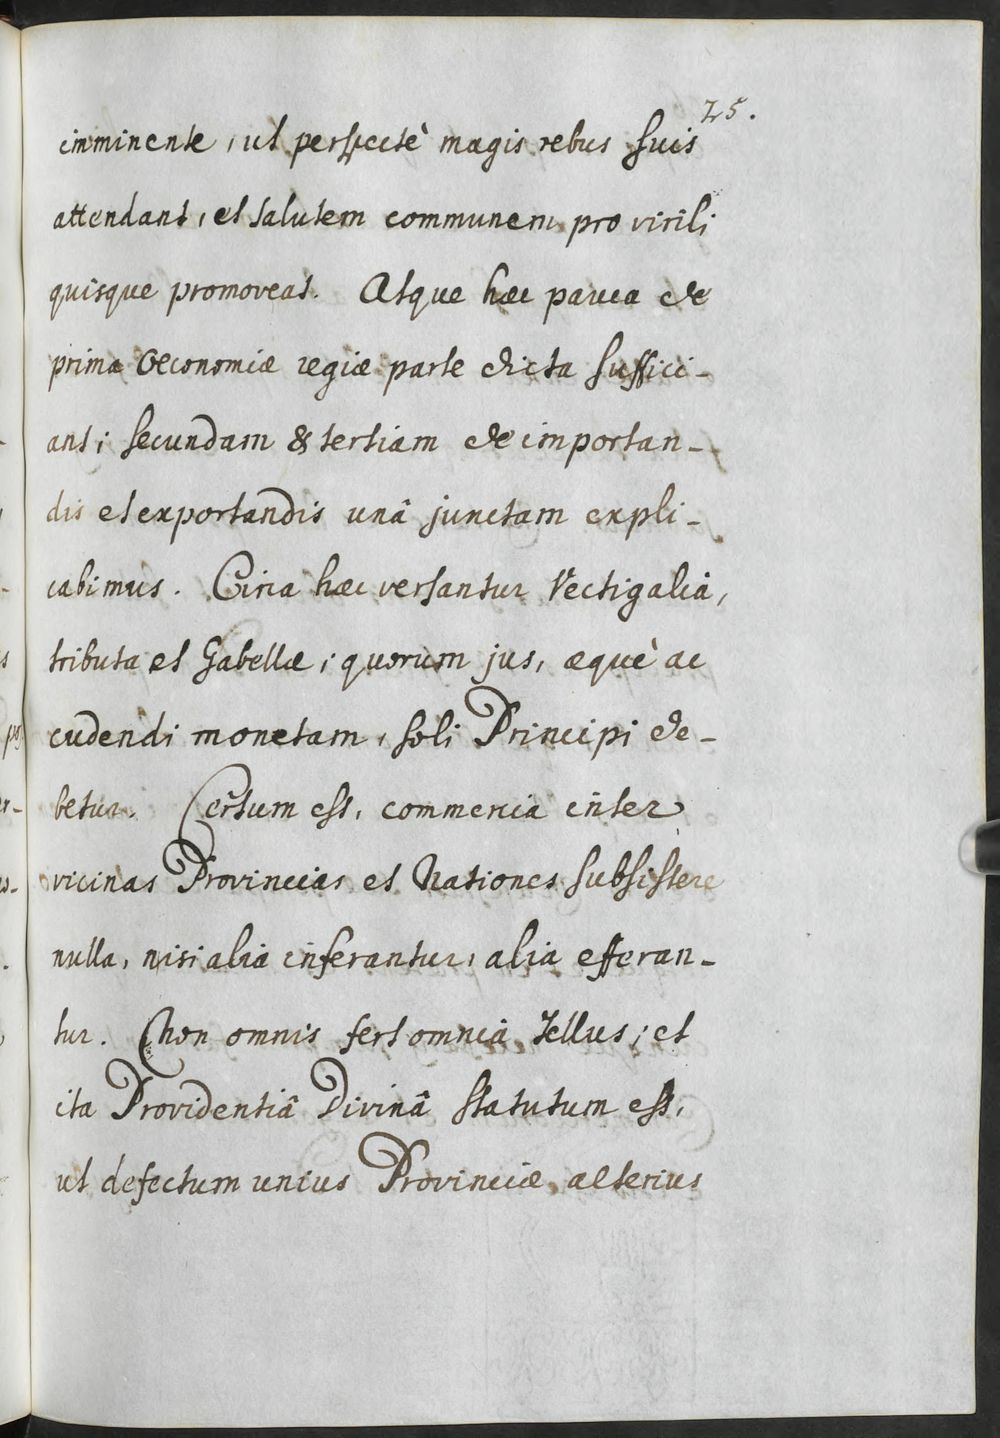 25.
imminente, ut perfectè magis rebus suis
attendant, et salutem communem pro virili
quisque promoveat. Atque hæc pauca de
prima Oeconomiæ regiæ parte dicta suffici-
ant; secundam & tertiam de importan-
dis et exportandis unâ junctam expli-
cabimus. Circa hæc versantur Vectigalia,
tributa et Gabellæ; quorum jus, æquè ac
cudendi monetam, soli Principi de-
betur. Certum est, commercia inter
vicinas Provincias et Nationes subsistere
nulla, nisi alia inferantur, alia efferan-
tur. Non omnis fert omnia Tellus; et
ita Providentiâ Divinâ statutum est,
ut defectum unius Provinciæ alterius